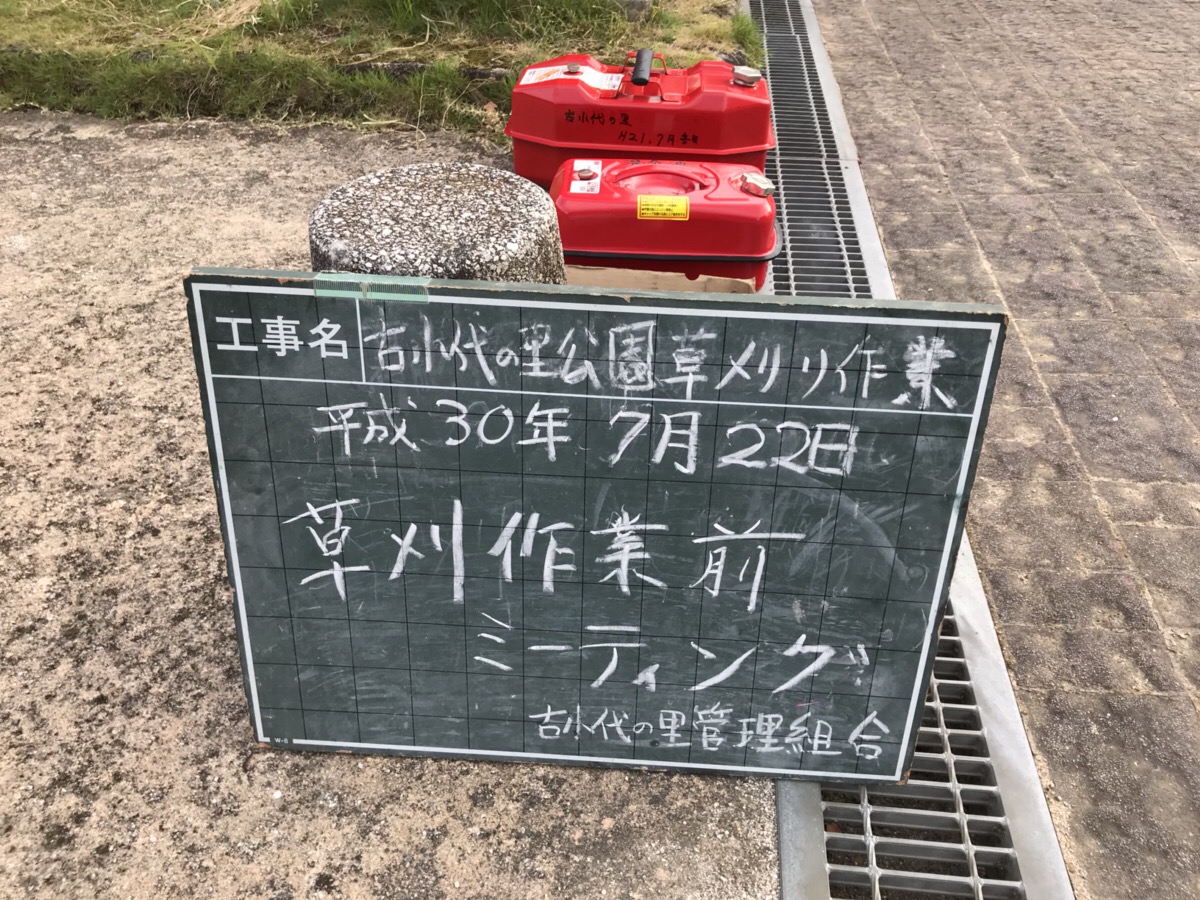 古小代の里
H21.7月
工事名 古小代の里公園草刈り作業
平成30年7月22日
草刈作業前
ミーティング
古小代の里管理組合
W-8